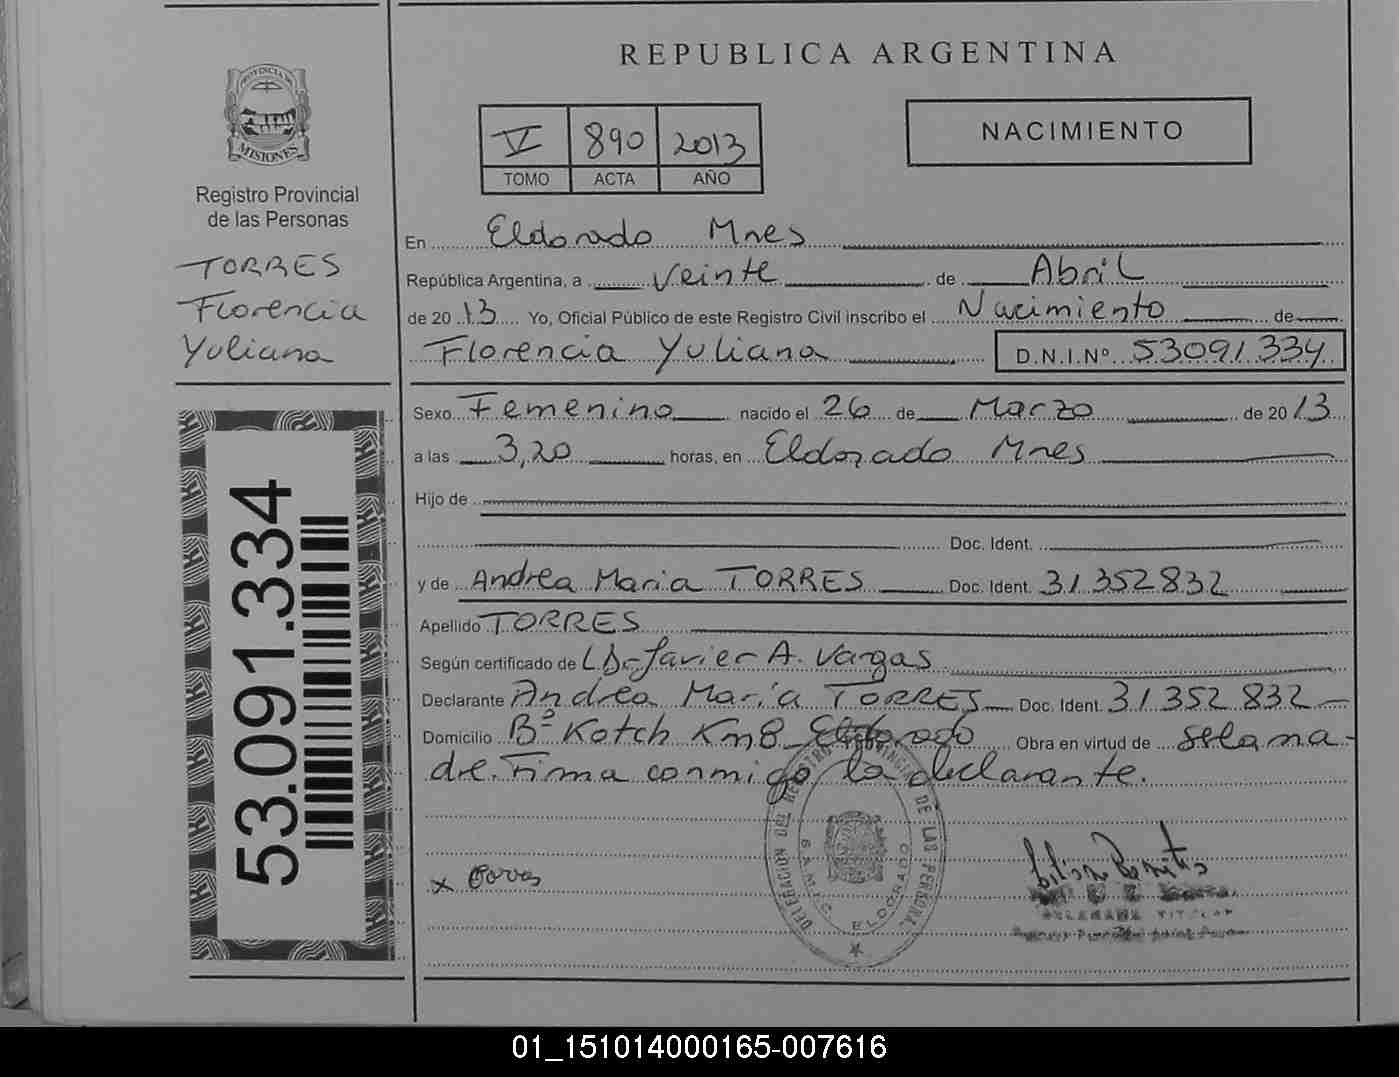 REPUBLICA ARGENTINA
PROVINCIA DE
MISIONES
Registro Provincial
de las Personas
TORRES
Florencia
Yuliana
53.091.334
V 890 2013
TOMO ACTA AÑO
NACIMIENTO
En Eldorado Mnes
República Argentina, a Veinte de Abril
de 2013 Yo, Oficial Público de este Registro Civil inscribo el Nacimiento de
Florencia Yuliana D.N.I.Nº 53091334
Sexo Femenino nacido el 26 de Marzo de 2013
a las 3,20 horas, en Eldorado Mnes
Hijo de
Doc. Ident.
y de Andrea Maria TORRES Doc. Ident. 31352832
Apellido TORRES
Según certificado de Dr Javier A. Vargas
Declarante Andrea María TORRES Doc. Ident. 31352832
Domicilio Bº Kotch Km8 Eldorado Obra en virtud de ser la ma-
dre. Firma conmigo la declarante.
DELEGACION DEL REGISTRO PROVINCIAL DE LAS PERSONAS
S.A.M.I.C. ELDORADO
x
01_151014000165-007616